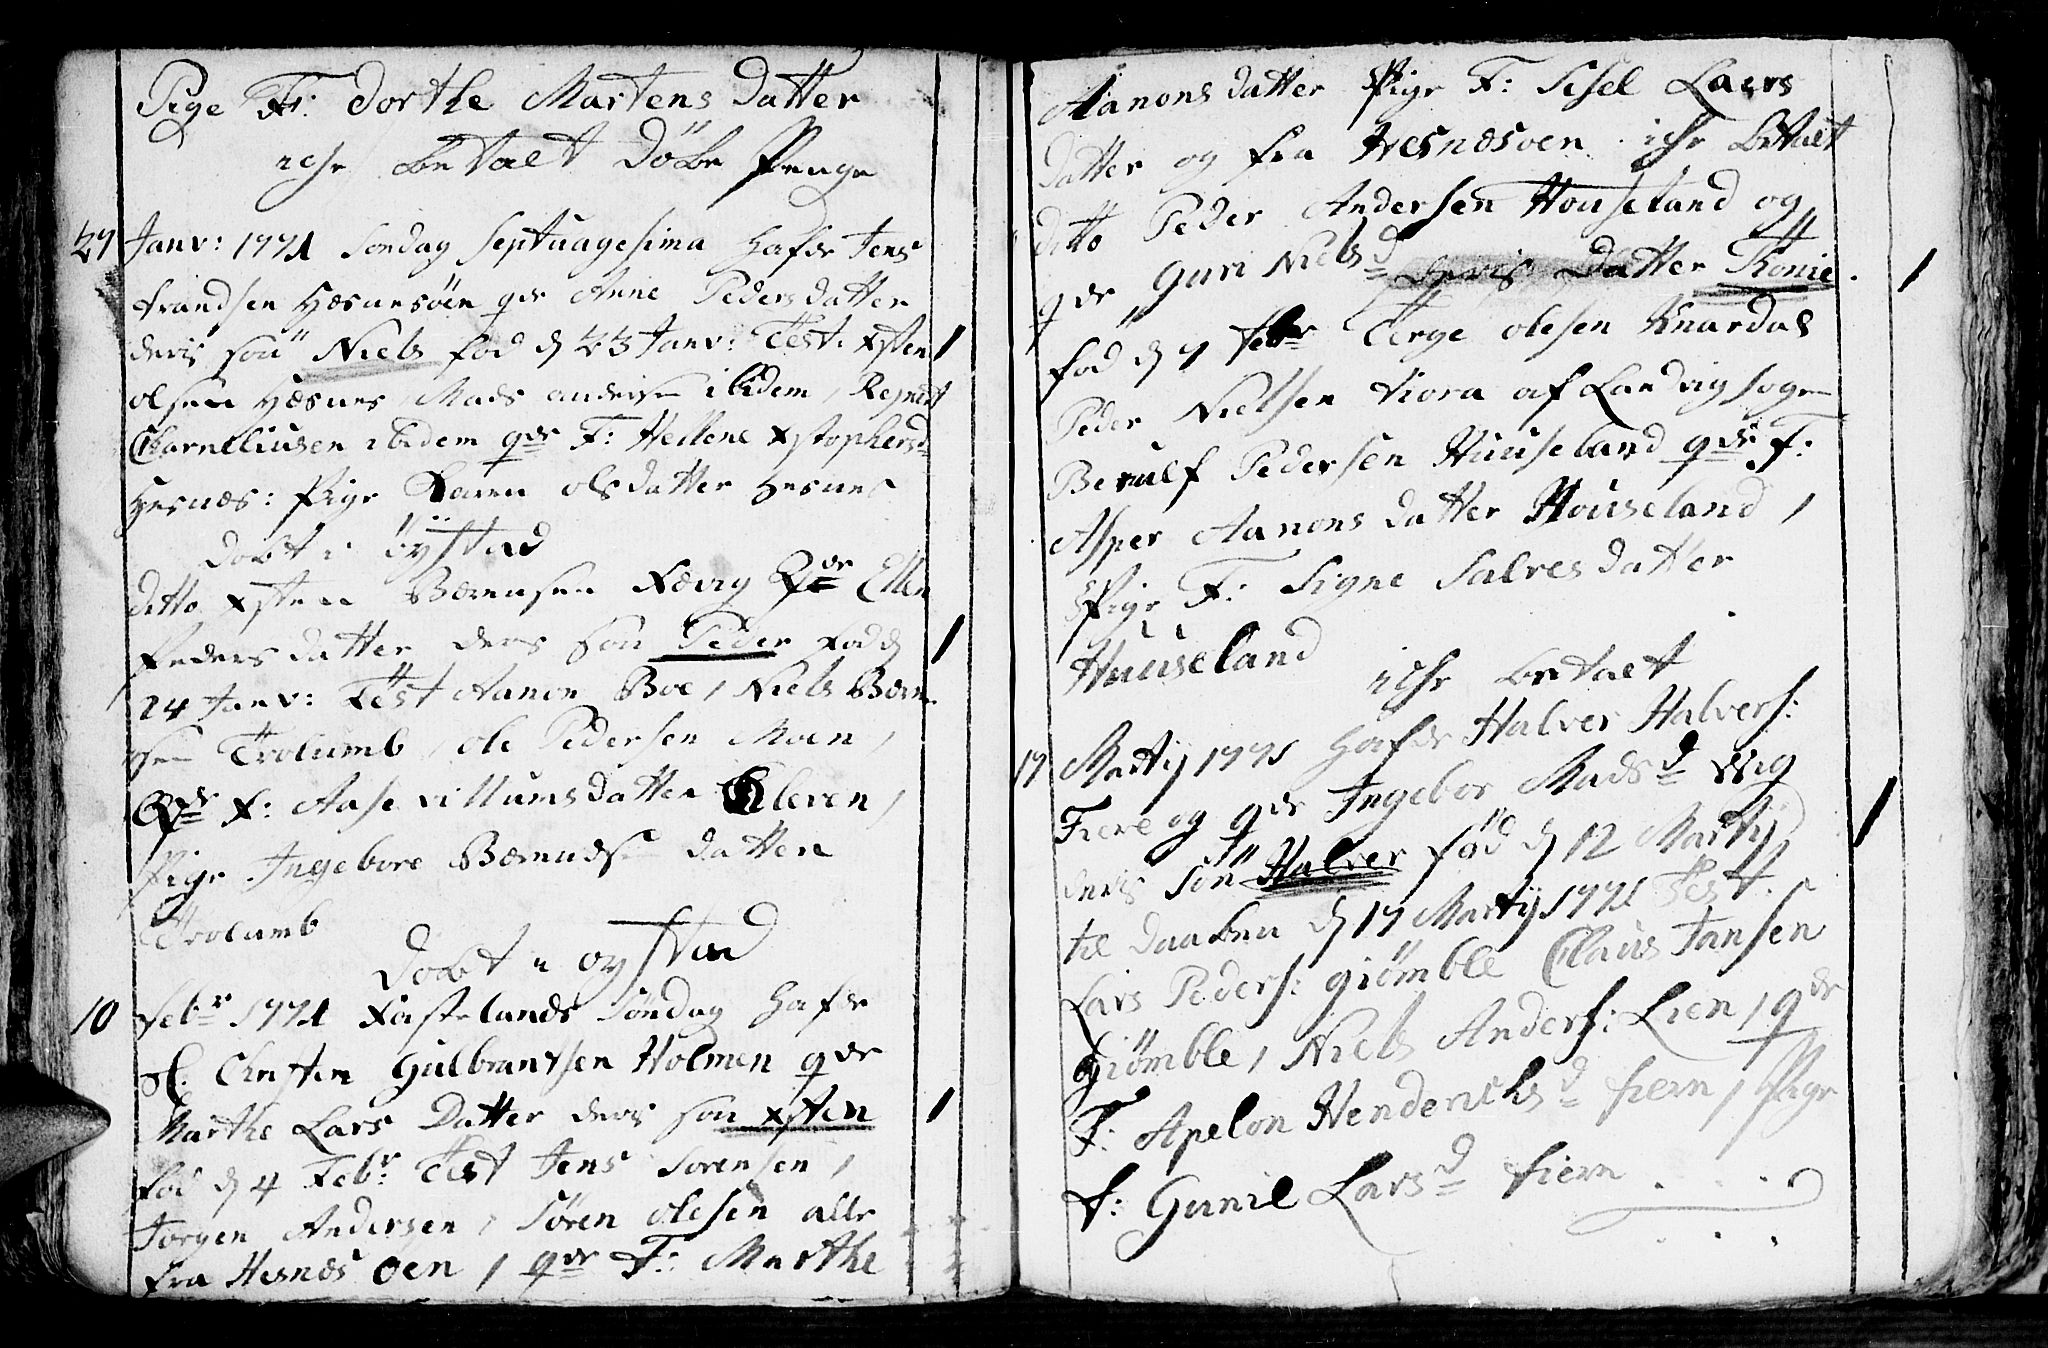 Pige F: Dorthe Martens Datter
iche betalt Döbe Penge
27 Janv: 1771 Søndag Septuagesima hafde Jens
frandsen Hæsnesöen qde Anne Pedersdatter
deris sön Niels fød d 23 Janv: Test. Xsten
olsen Hæsnes, Mads andersen ibidem, Rejnert
Charneliusen ibidem qde F: Hellene Xstophersd
Hesnæs: Pige Karen olsdatter Hesnes
Döbt i öystad
Ditto Xsten Bærensen Færvig Qde Ellen
Pedersdatter deris sön Peder Fød d
24 Janv: Test Aanon Boe, Niels Bærn
sen Trolumb, ole Pedersen Moen,
Qde F: Aase villumsdatter Kleven,
Pige Ingebore Bærnds datter
Trolumb
Döbt i oystad
10 Febr 1771 Fastelands Söndag hafde
Christen Gulbrantsen Holmen qde
Marthe Lars Datter deris sön Xsten
fød d 4 Febr Test Jens Sorensen,
Jorgen Andersen, Sören olesen alle
fra Hesnæs öen, qde F: Marthe
Aanons datter Pige F: Sisel Laers
datter og fra Hesnæsöen. iche betalt
ditto Peder Andersen Houseland og
qde Guri Nielsd deris Datter Tonie.
fød d 7 febr Terge olesen Knardal
Peder Nielsen viora af Landvig sogn
Berulf Pedersen Huuseland qde F:
Asper Aanons datter Houseland,
Pige F: Signe Salvesdatter
Huuseland
iche betalt
17 Martij 1771 hafde Halver Halvers:
Fiere og qde Ingebor Madsd
deris sön Halver fød d 12 Martij
til Daaben d 17 Martij 1771 Test.
Lars Peders: giömble Claus Jansen
Giömble, Niels Anders: Lien, qde
F: Apelon Henderichsd fiern, Pige
F: Gunil Larsd fiern